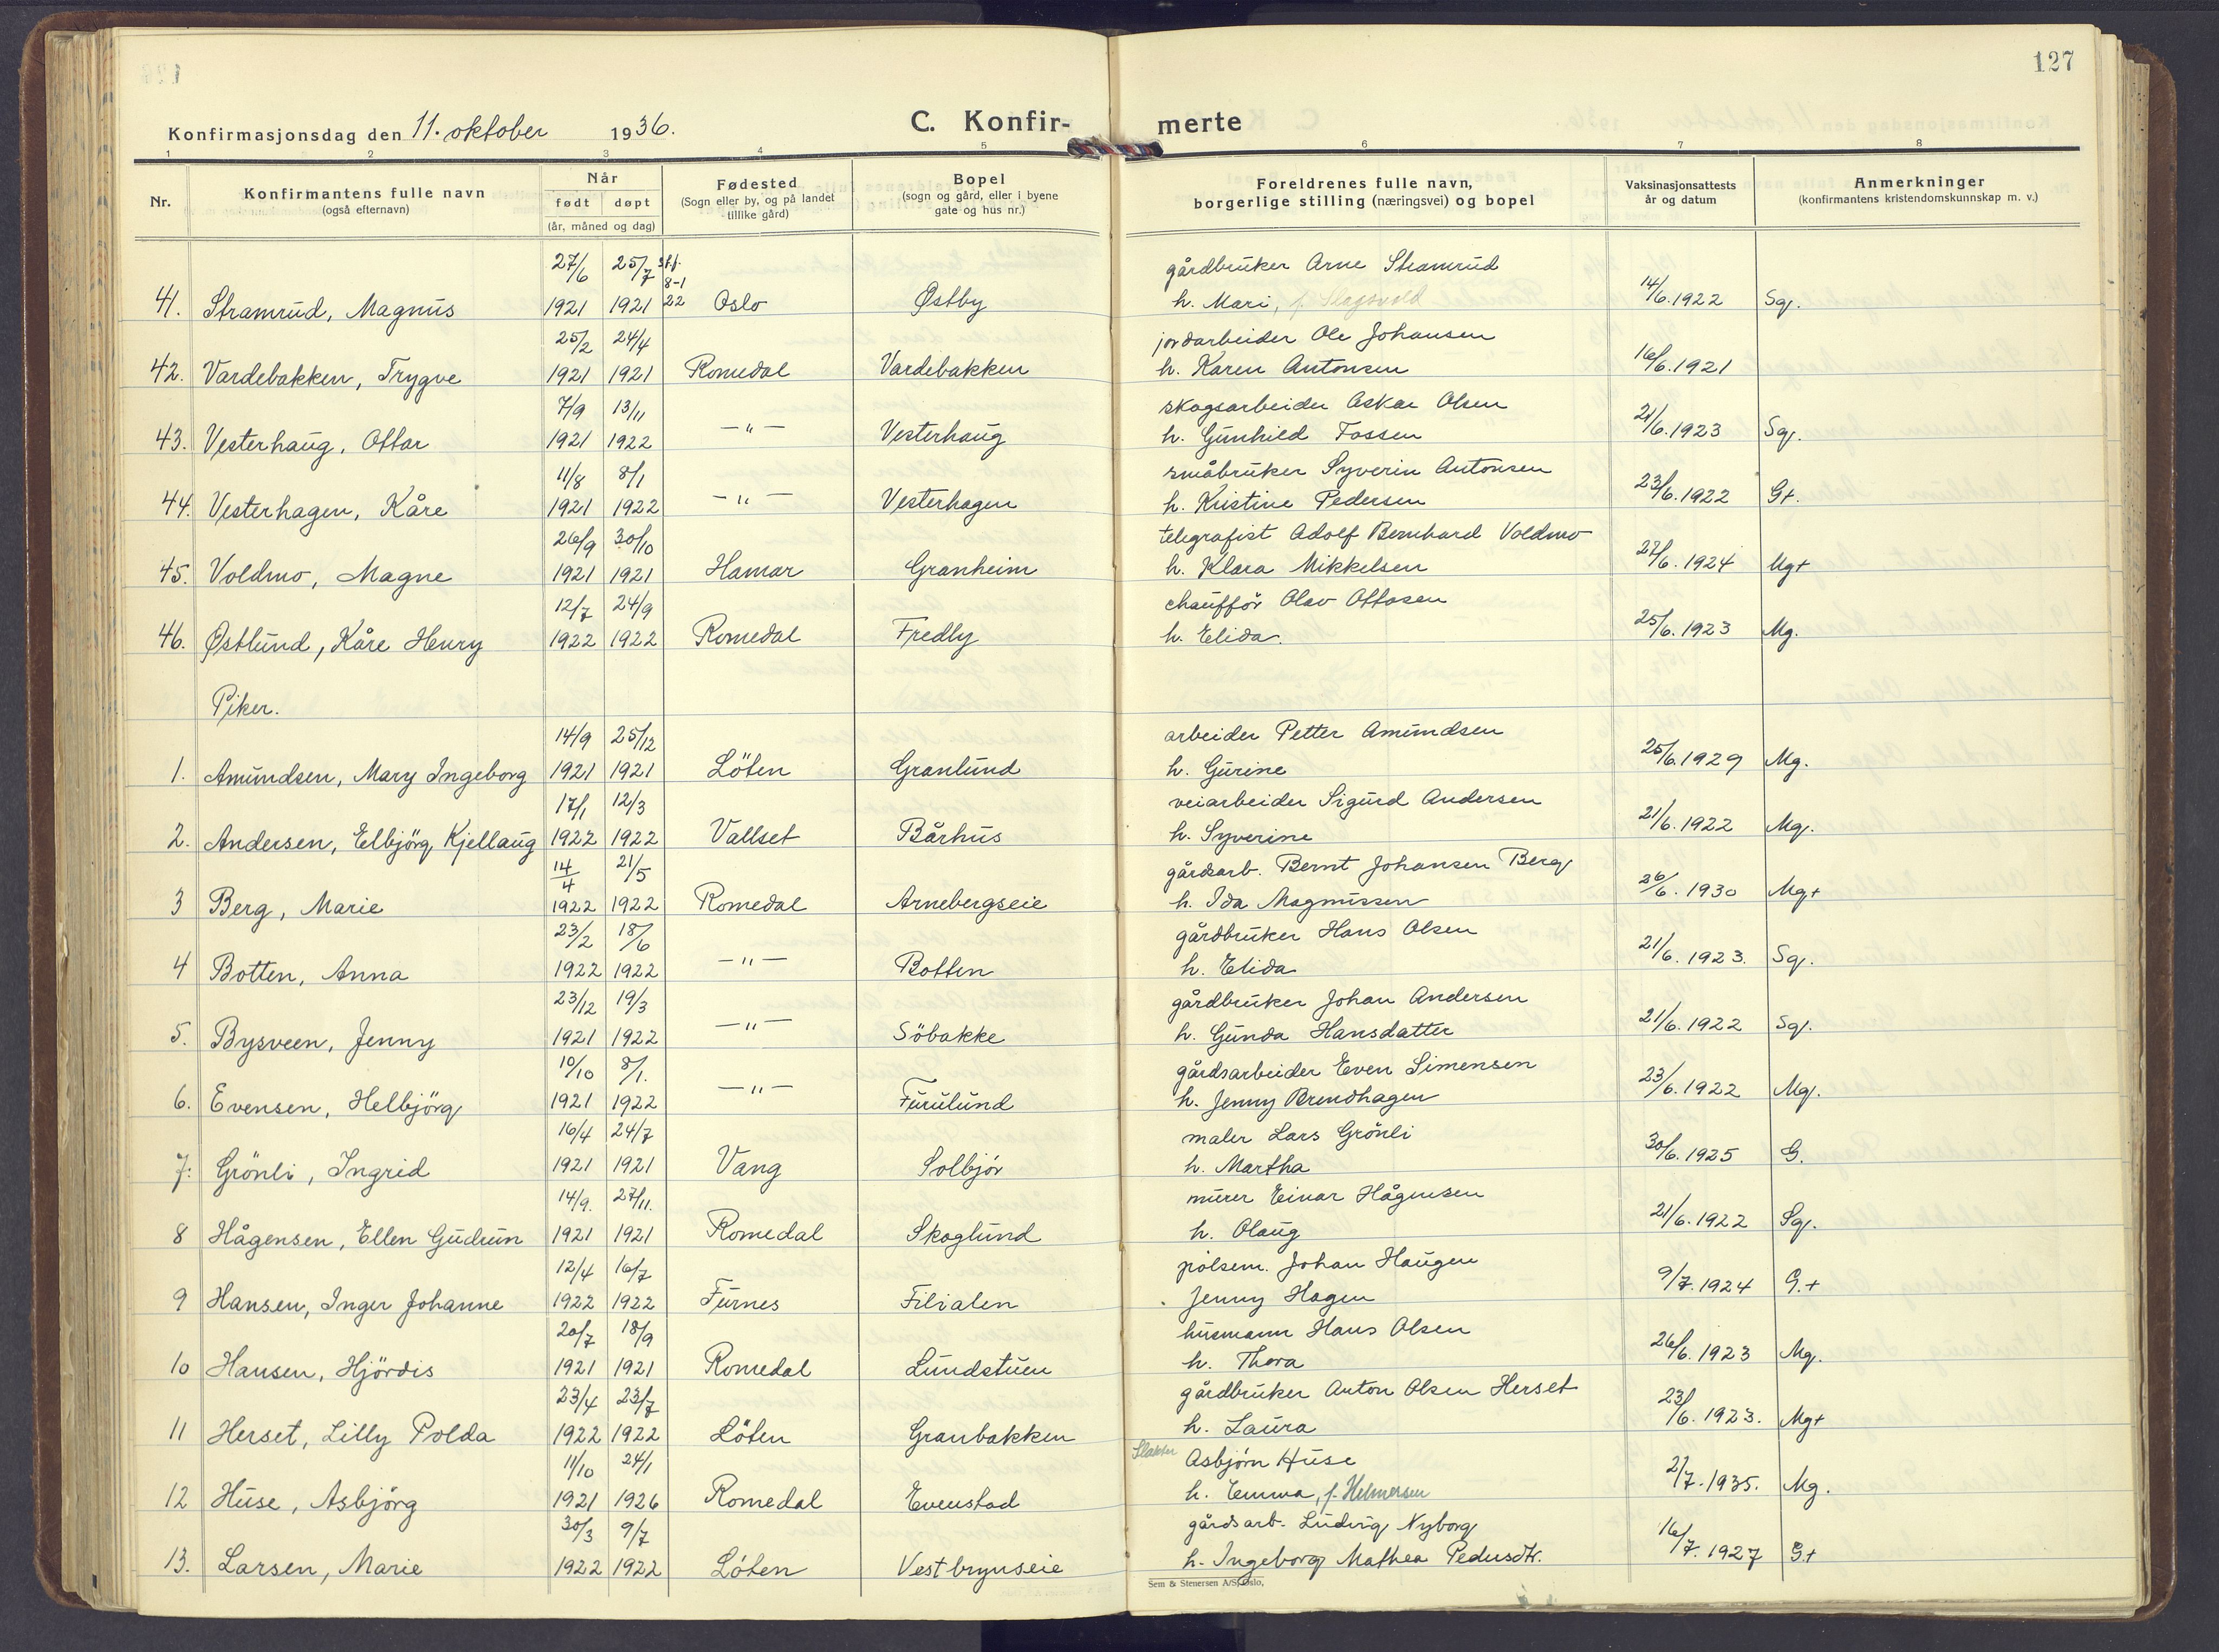 127
Konfirmasjonsdag den 11. oktober 1936.
C. Konfir-merte
1 2 3 4 5 6 7 8
Nr.
Konfirmantens fulle navn
(også efternavn)
Når
født døpt
(år, måned og dag)
Fødested
(Sogn eller by, og på landet
tillike gård)
Bopel
(sogn og gård, eller i byene
gate og hus nr.)
Foreldrenes fulle navn,
borgerlige stilling (næringsvei) og bopel
Vaksinasjonsattests
år og datum
Anmerkninger
(konfirmantens kristendomskunnskap m. v.)
27/6 25/7 st.f. 8-1 22 gårdbruker Arne Stramrud
41. Stramrud, Magnus 1921 1921 Oslo Østby h. Mari, f. Slagsvold 14/6.1922 Sg.
25/2 24/4 jordarbeider Ole Johansen
42. Vardebakken, Trygve 1921 1921 Romedal Vardebakken h. Karen Antonsen 16/6.1921
7/9 13/11 skogsarbeider Oskar Olsen
43. Vesterhaug, Ottar 1921 1922 —"— Vesterhaug h. Gunhild Fossen 21/6.1923 Sg.
11/8 8/1 småbruker Syverin Antonsen
44. Vesterhagen, Kåre 1921 1922 —"— Vesterhagen h. Kristine Pedersen 23/6.1922 G+.
26/9 30/10 telegrafist Adolf Bernhard Voldmo
45. Voldmo, Magne 1921 1921 Hamar Granheim h. Klara Mikkelsen 27/6.1924 Mg+
12/7 24/9 chauffør Olav Ottosen
46. Østlund, Kåre Henry 1922 1922 Romedal Fredly h. Elida. 25/6.1923 Mg.
Piker.
14/9 25/12 arbeider Petter Amundsen
1. Amundsen, Mary Ingeborg 1921 1921 Löten Granlund h. Gurine 25/6.1929 Mg.
17/1 12/3 veiarbeider Sigurd Andersen
2. Andersen, Elbjörg Kjellaug 1922 1922 Vallset Bårhus h. Syverine 21/6.1922 Mg.
14/4 21/5 gårdsarb. Bernt Johansen Berg
3 Berg, Marie 1922 1922 Romedal Arnebergseie h. Ida Magnussen 26/6.1930 Mg+
23/2 18/6 gårdbruker Hans Olsen
4 Botten, Anna 1922 1922 —"— Botten h. Elida 21/6.1923. Sg.
23/12 19/3 gårdbruker Johan Andersen
5. Bysveen, Jenny 1921 1922 —"— Söbakke h. Gunda Hansdatter 21/6.1922 Sg.
10/10 8/1. gårdsarbeider Even Simensen
6. Evensen, Helbjörg 1921 1922 —"— Furulund h. Jenny Brendhagen 23/6.1922 Mg.
16/4 24/7 maler Lars Grönli
7. Grönli, Ingrid 1921 1921 Vang Solbjör h. Martha 30/6.1925 G.
14/9. 27/11. murer Einar Hågensen
8 Hågensen, Ellen Gudrun 1921 1921 Romedal Skoglund h. Olaug 21/6.1922 Sg.
12/4 16/7 pölsem. Johan Haugen
9 Hansen, Inger Johanne 1922 1922 Furnes Filialen Jenny Hagen 9/7.1924 G.+
20/7 18/9 husmann Hans Olsen
10 Hansen, Hjördis 1921 1921 Romedal Lundstuen h. Thora 26/6.1923 Mg.
23/4 23/7 gårdbruker Anton Olsen Herset
11 Herset, Lilly Polda 1922 1922 Löten Granbakken h. Laura 23/6.1923. Mg+
11/10 24/1 Slakter Asbjørn Huse
12 Huse, Asbjörg 1921 1926 Romedal Evenstad h. Emma, f. Helmersen 2/7.1935. Mg.
30/3 9/7 gårdsarb. Ludvig Nyborg
13. Larsen, Marie 1922 1922 Löten Vestbrynseie h. Ingeborg Mathea Pedersdtr. 16/7.1927 G+
Sem & Stenersen A/S, Oslo,